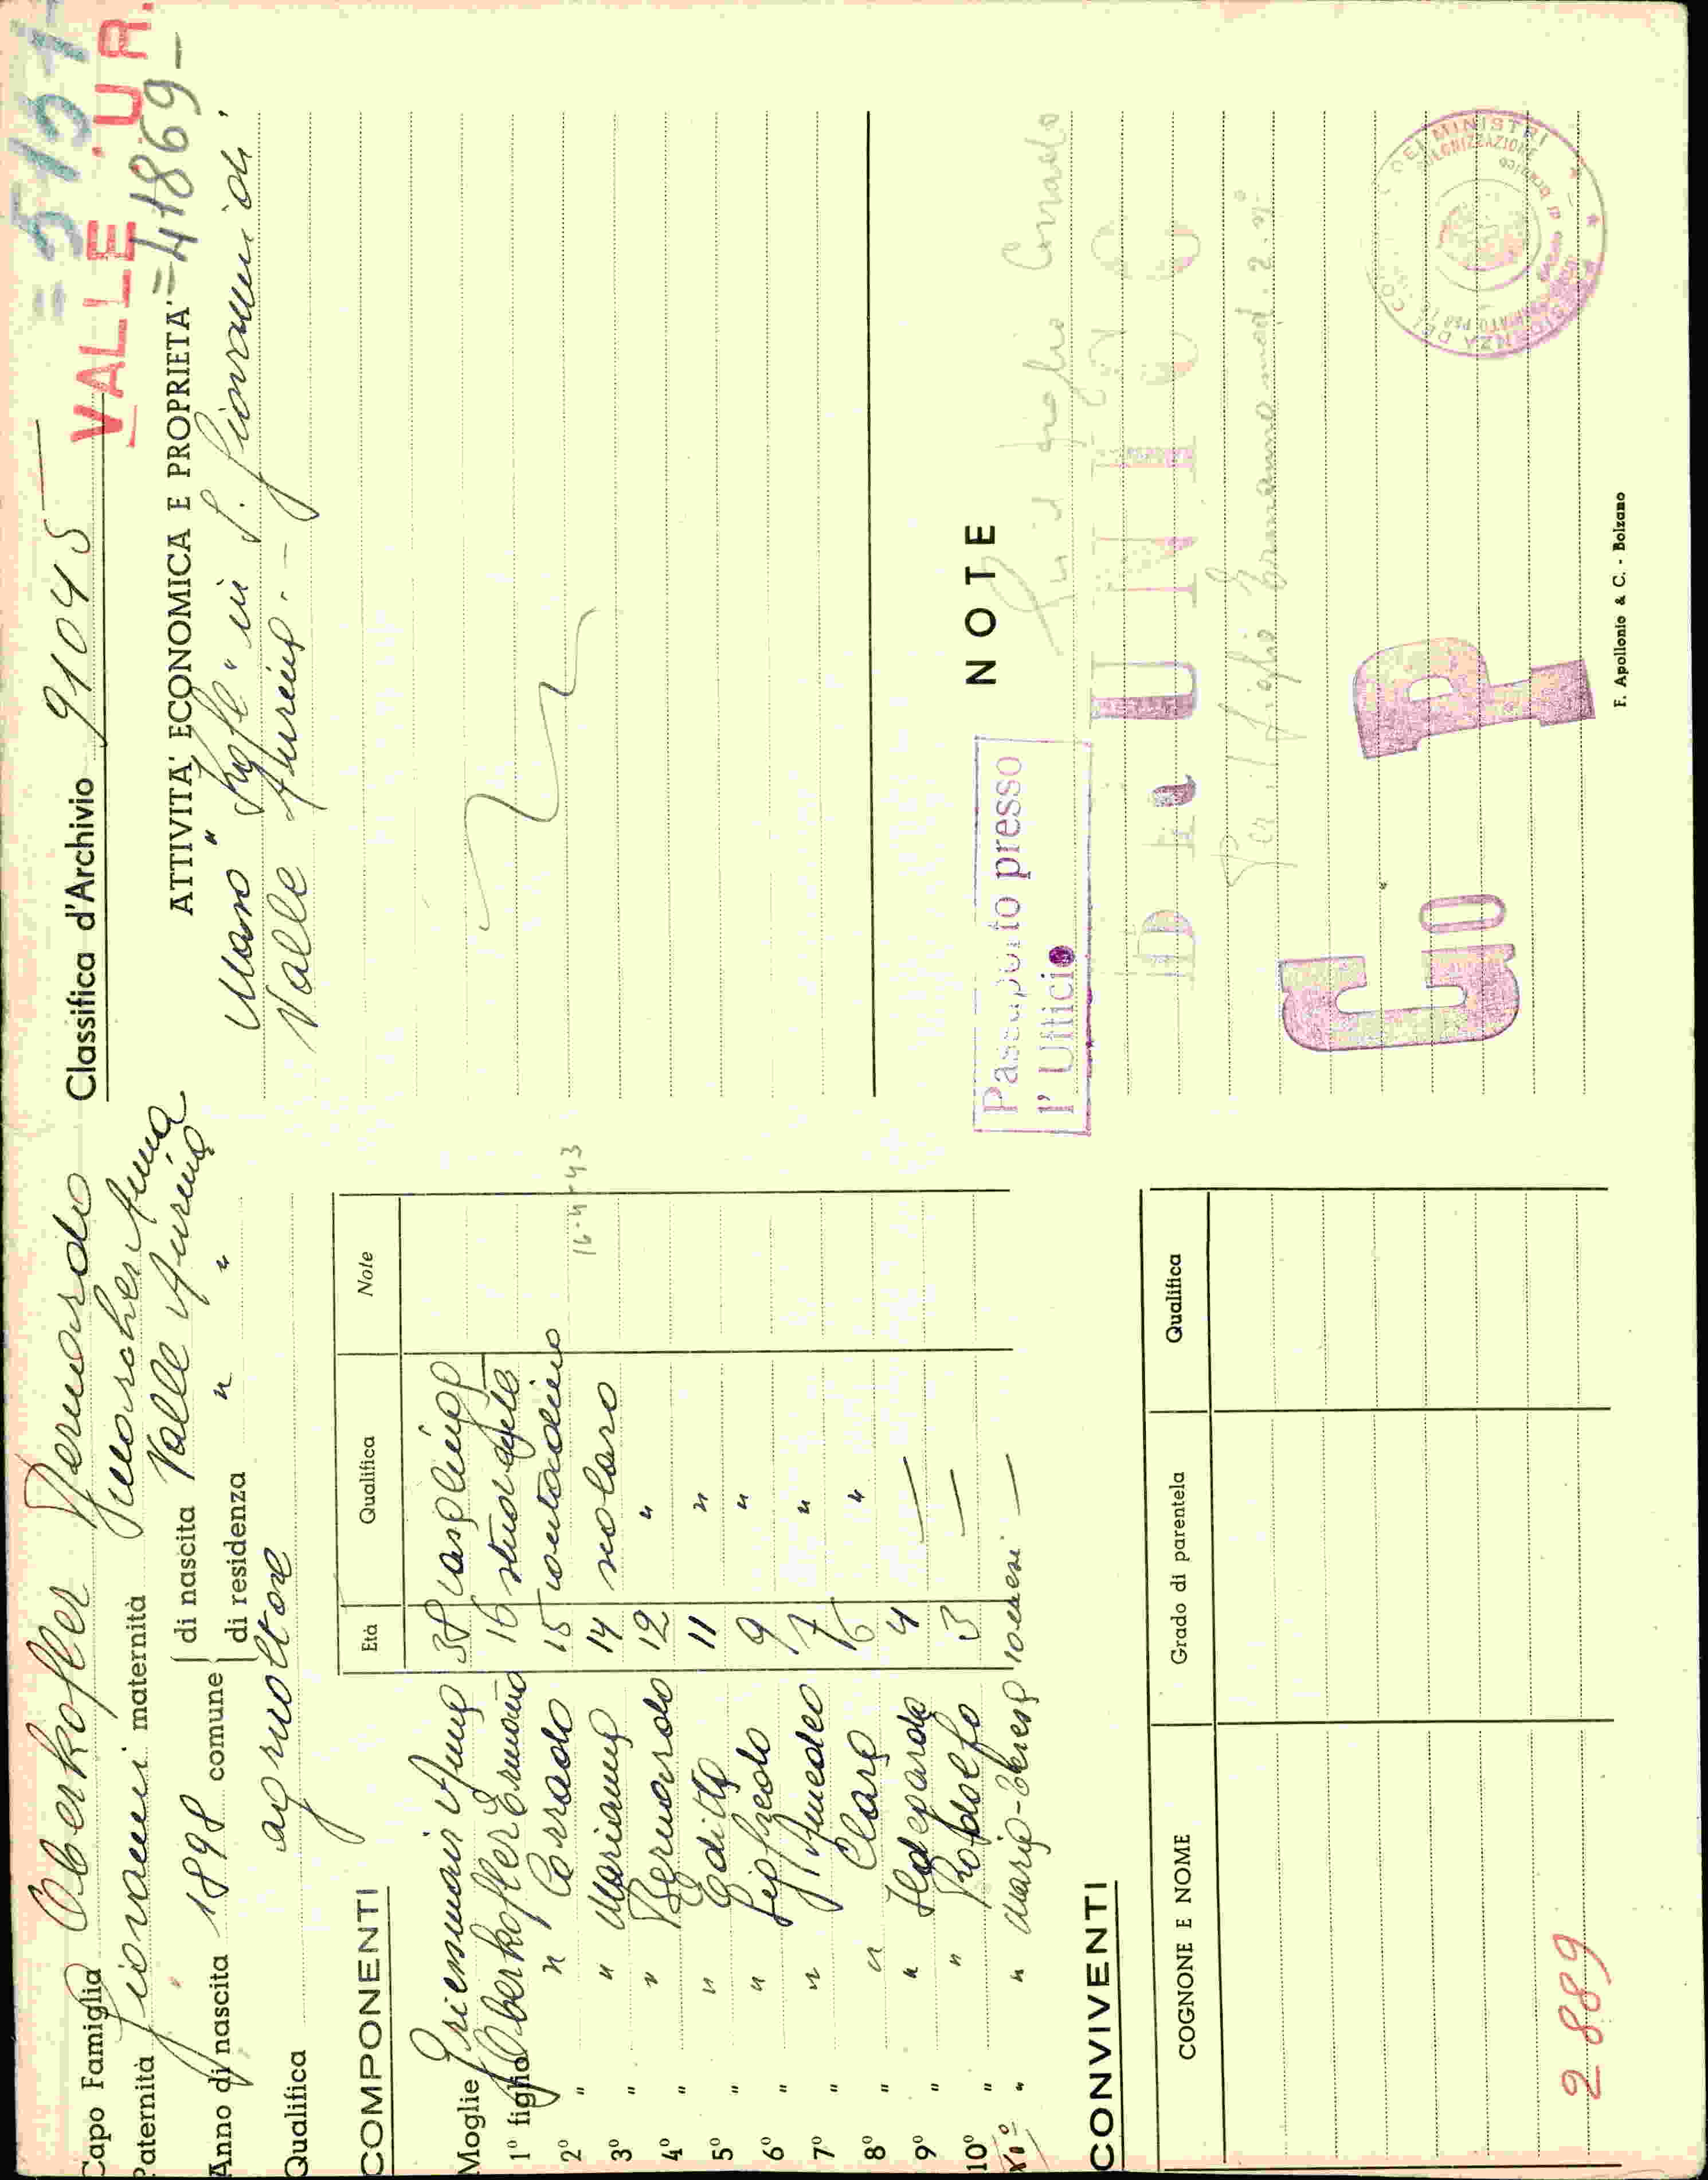 = 5151-
VALLE AUR.
=41869-
Capo Famiglia Oberkofler Bernardo Classifica d'Archivio 91045
Paternità Giovanni maternità Anna
Anno di nascita 1898 comune { di nascita Valle Aurina
di residenza " "
Qualifica agricoltore
ATTIVITA' ECONOMICA E PROPRIETA'
Maso "Kofl" in S. Giovanni di
Valle Aurina. -
COMPONENTI
Età Qualifica Note
Moglie Anna 38 casalinga
1° figlio Oberkofler Ermanno 16
2° " " Corrado 15 contadino
16-4-43
3° " " Marianna 14 scolara
4° " " Bernardo 12 "
5° " " Editta 11 "
6° " " 9 "
7° " " Amedeo 7 "
8° " " Clara 6 "
9° " " 4 —
10° " " Rodolfo 3 —
XI° " " Maria-Teresa 10 mesi —
CONVIVENTI
COGNONE E NOME Grado di parentela Qualifica
2889
NOTE
Passaporto presso
l' Ufficio
Per il figlio Corrado
Per il figlio Ermanno mod. 2.
F. Apollonio & C. - Bolzano